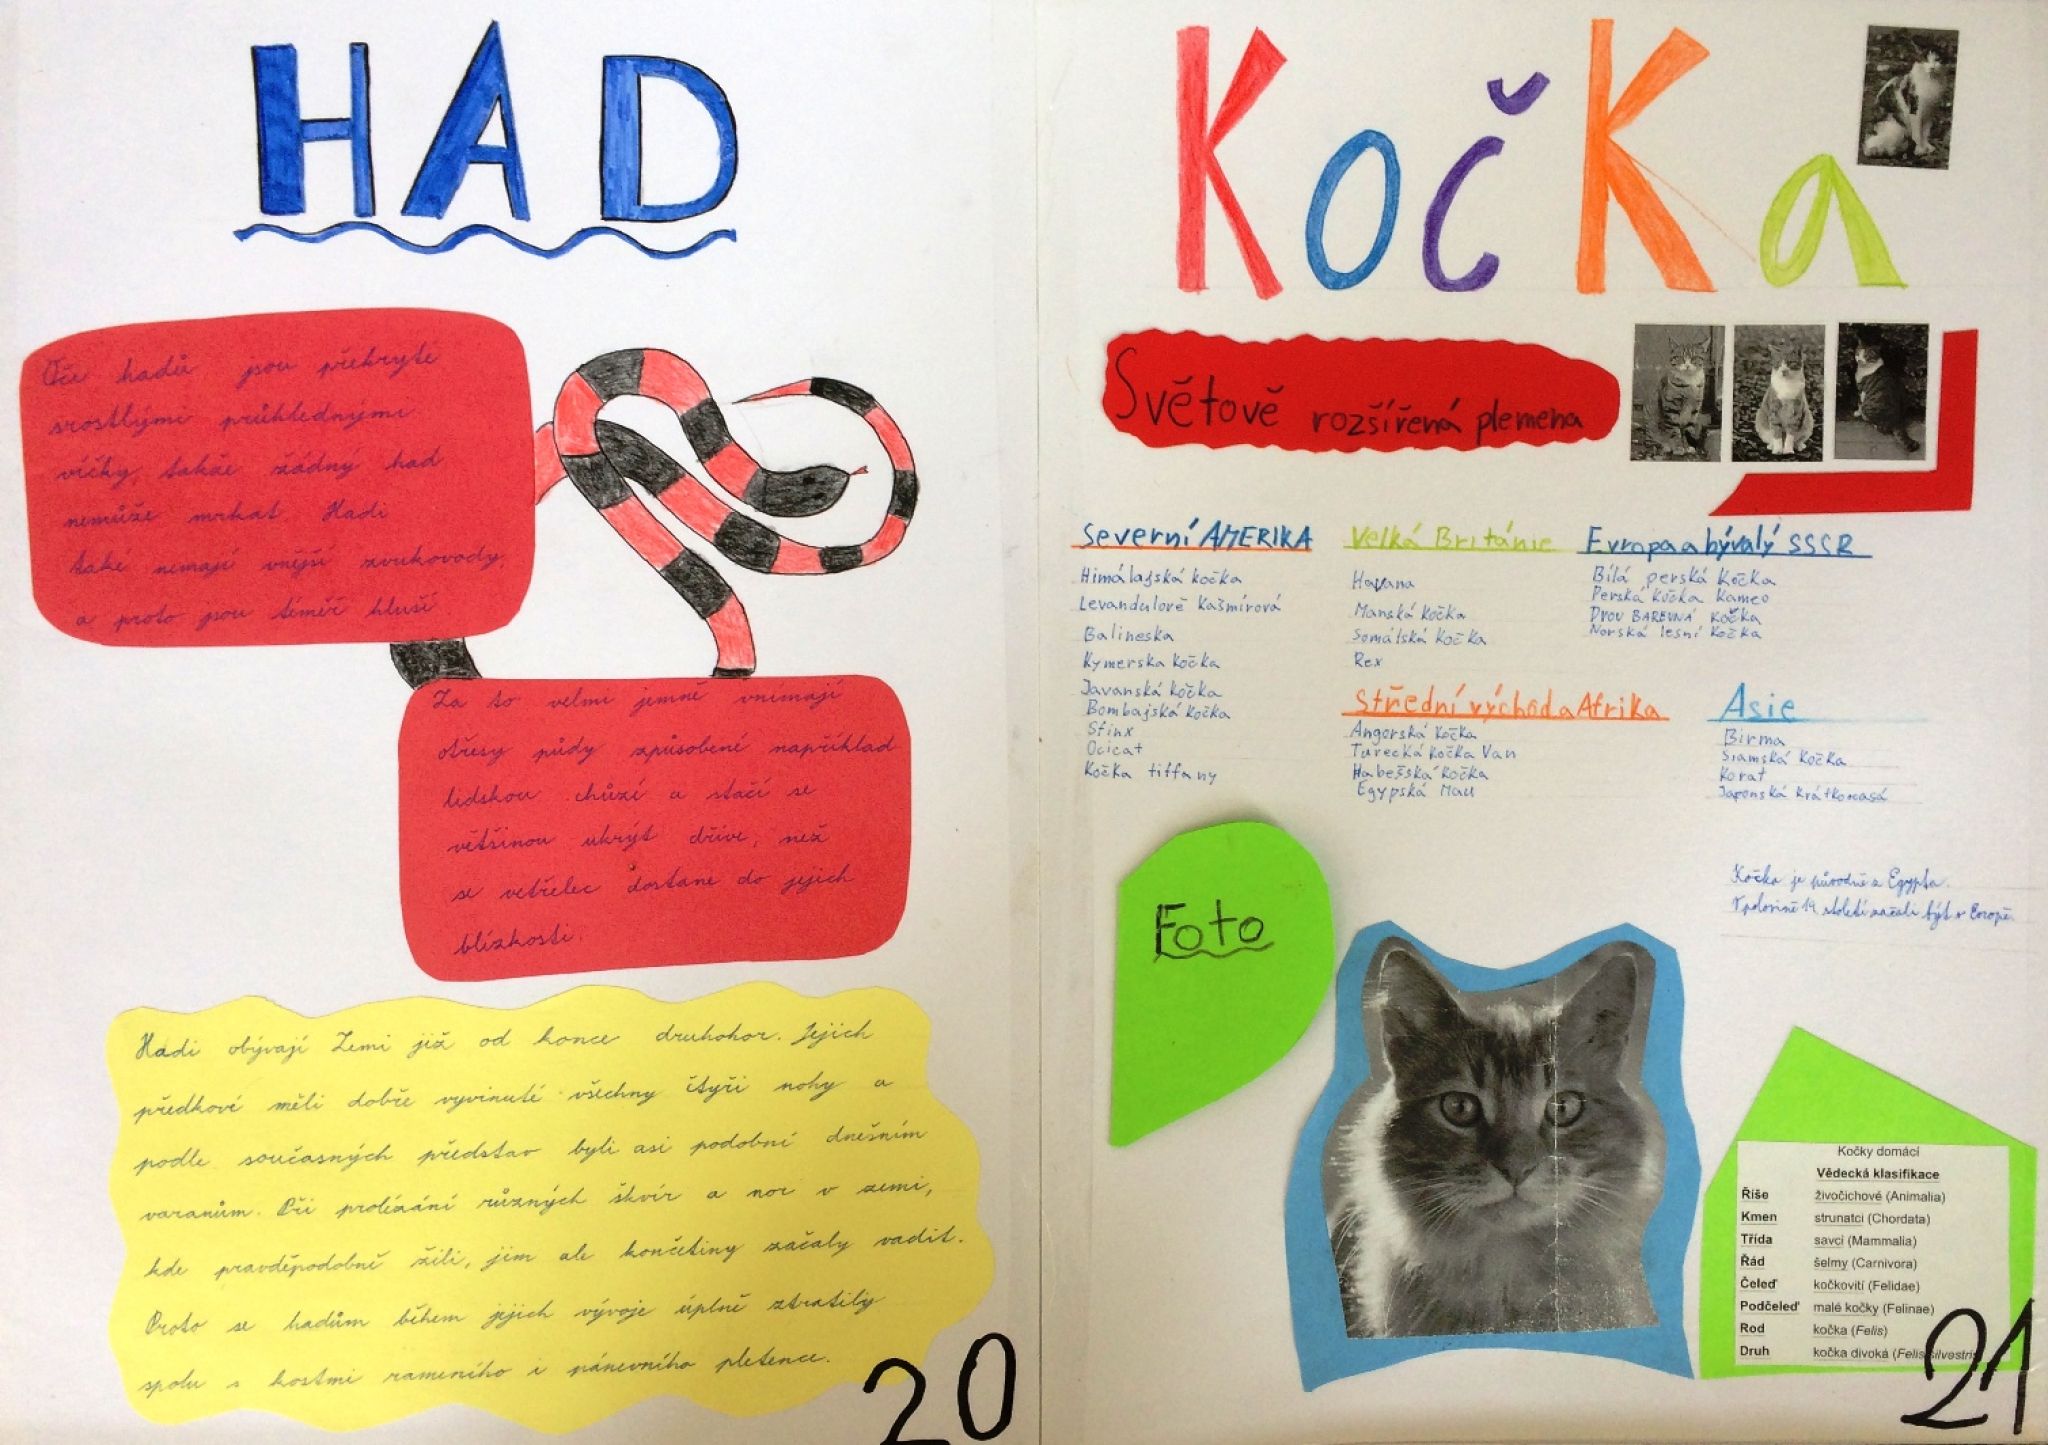 HAD
Oči hadů jsou překryté
srostlými průhlednými
víčky, takže žádný had
nemůže mrkat. Hadi
také nemají vnější zvukovody,
a proto jsou téměř hluší.
Za to velmi jemně vnímají
otřesy půdy způsobené například
lidskou chůzí a stačí se
většinou ukrýt dříve, než
se vetřelec dostane do jejich
blízkosti.
Hadi obývají Zemi již od konce druhohor. Jejich
předkové měli dobře vyvinuté všechny čtyři nohy a
podle současných představ byli asi podobní dnešním
varanům. Při prolézání různých škvír a nor v zemi,
kde pravděpodobně žili, jim ale končetiny začaly vadit.
Proto se hadům během jejich vývoje úplně ztratily
spolu s kostmi rameního i pánevního pletence.
20
KočKa
Světově rozšířená plemena
Severní AMERIKA
Himálajská kočka
Levandulově Kašmírová
Balineska
Kymerska Kočka
Javanská Kočka
Bombajská Kočka
Sfinx
Ocicat
Kočka tiffany
Velká Británie
Havana
Manská Kočka
Somálská Kočka
Rex
Evropa a bývalý SSSR
Bílá perská Kočka
Perská Kočka Kameo
DVOU BAREVNÁ Kočka
Norská lesní Kočka
Střední východ a Afrika
Angorská Kočka
Turecká Kočka Van
Habešská Kočka
Egypská Mau
Asie
Birma
Siamská Kočka
Korat
Japonská
Kočka je původně z Egypta.
V polovině 19 století začali být v Evropě.
Foto
Kočky domácí
Vědecká klasifikace
Říše živočichové (Animalia)
Kmen strunatci (Chordata)
Třída savci (Mammalia)
Řád šelmy (Carnivora)
Čeleď kočkovití (Felidae)
Podčeleď malé kočky (Felinae)
Rod kočka (Felis)
Druh kočka divoká (Felis silvestris
21